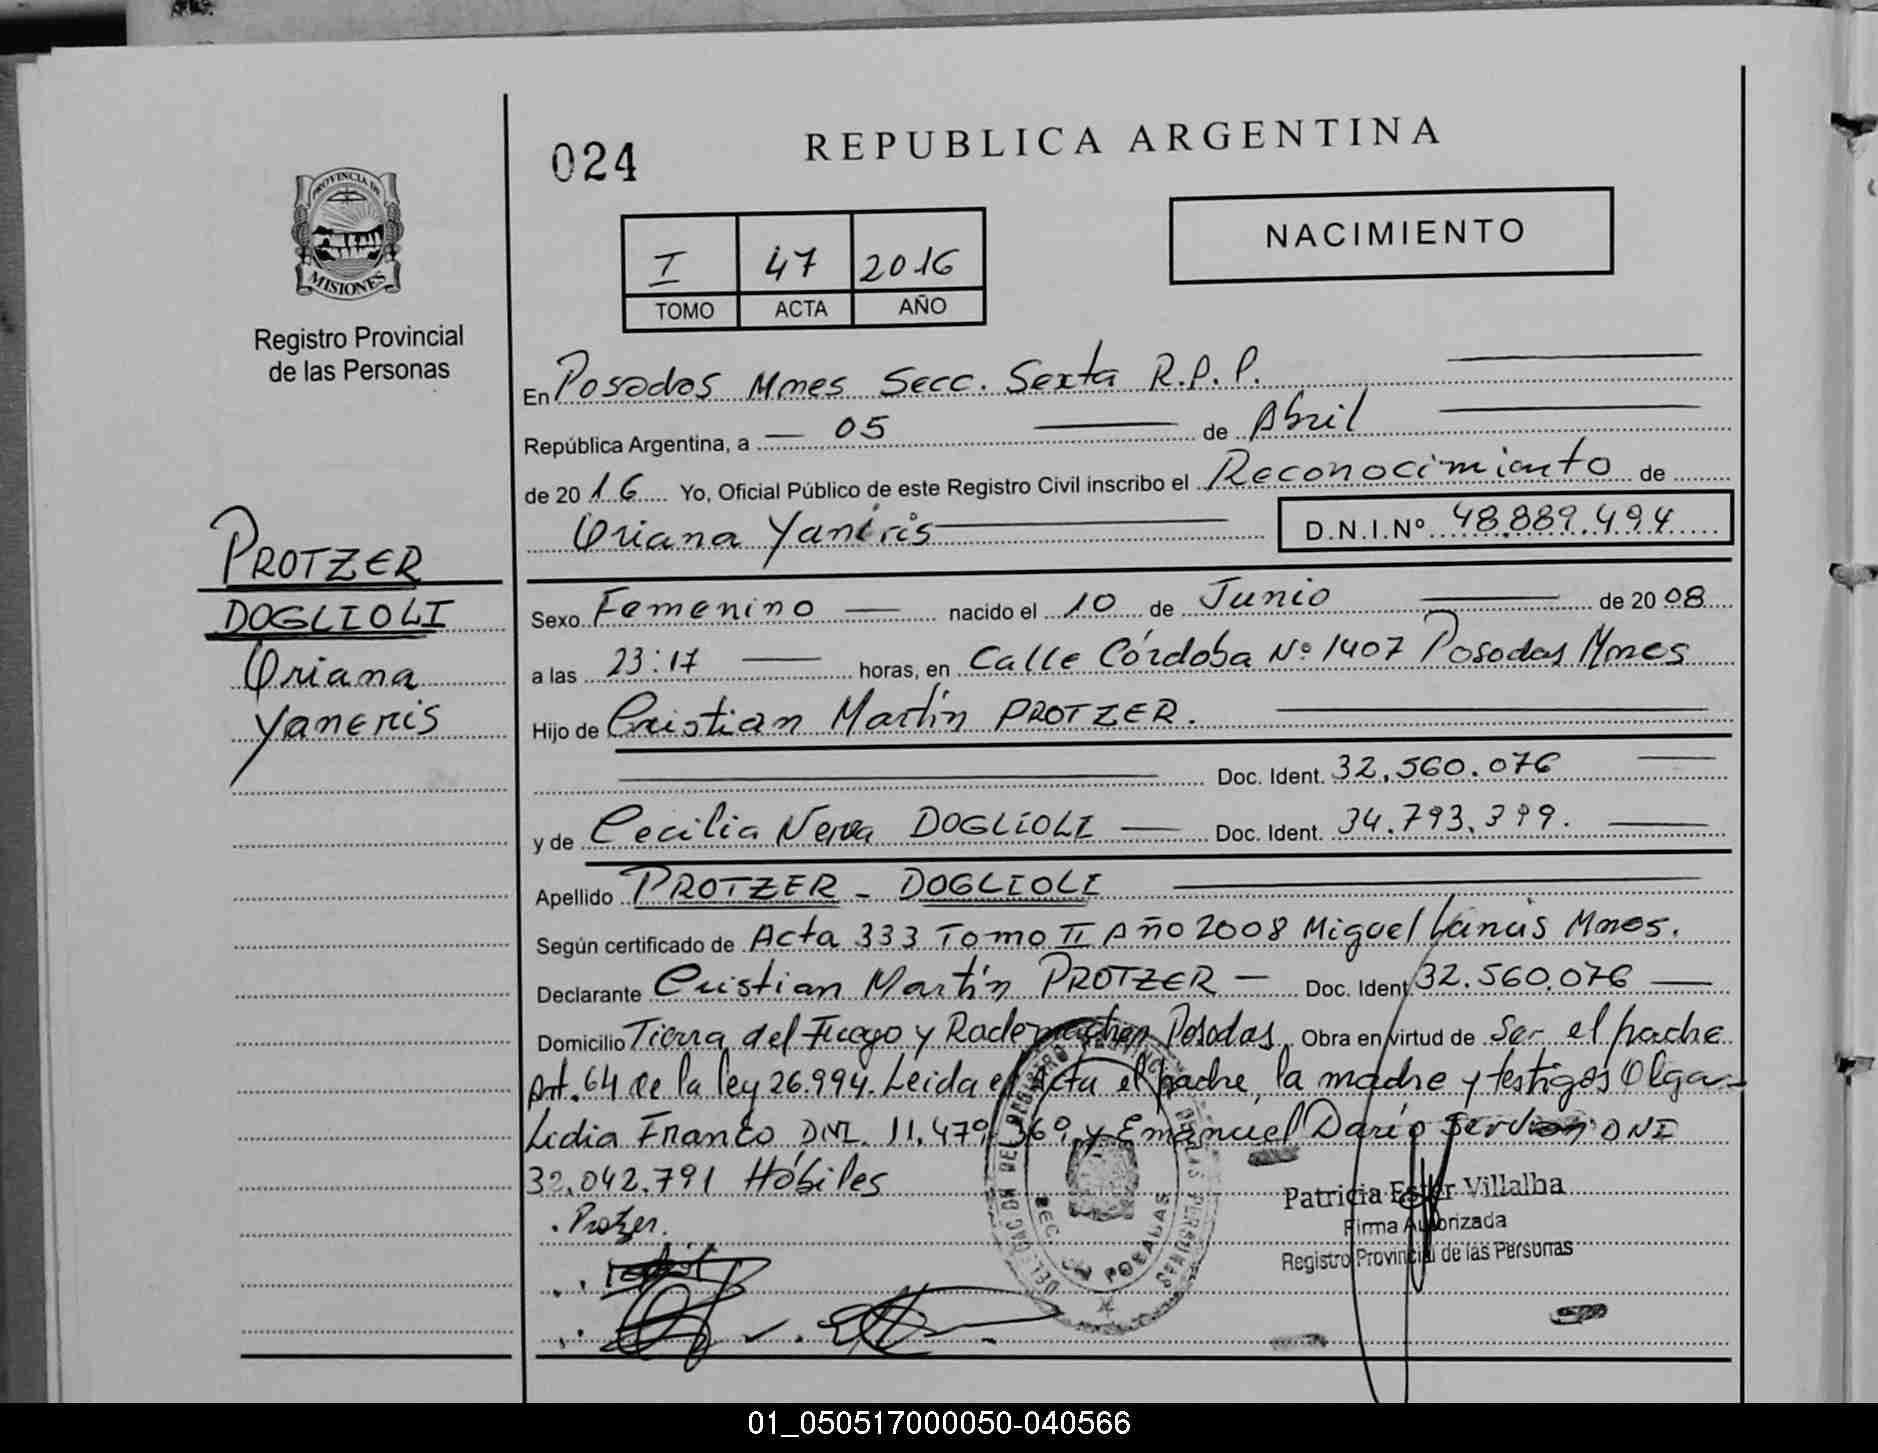 024
REPUBLICA ARGENTINA
PROVINCIA DE
MISIONES
Registro Provincial
de las Personas
I 47 2016
TOMO ACTA AÑO
NACIMIENTO
En Posadas Mnes Secc. Sexta R.P.P.
República Argentina, a 05 de Abril
de 2016 Yo, Oficial Público de este Registro Civil inscribo el Reconocimiento de
Oriana Yaneris D.N.I.Nº 48.889.494
PROTZER
DOGLIOLI
Oriana
Yaneris
Sexo Femenino nacido el 10 de Junio de 2008
a las 23:17 horas, en Calle Córdoba Nº 1407 Posadas Mnes
Hijo de Cristian Martín PROTZER.
Doc. Ident. 32.560.076
y de Cecilia DOGLIOLI Doc. Ident. 34.793.399.
Apellido PROTZER - DOGLIOLI
Según certificado de Acta 333 Tomo II Año 2008 Miguel Lanús Mnes.
Declarante Cristian Martín PROTZER Doc. Ident. 32.560.076
Domicilio Tierra del Fuego y Rademacher Posadas Obra en virtud de Ser el padre
Art. 64 de la ley 26.994. Leida el Acta el padre, la madre y testigos Olga
Lidia Franco DNI. 11.479.369 y Emanuel Darío DNI
32.042.791 Hábiles
Protzer.
DELEGACION DEL REGISTRO PROVINCIAL DE LAS PERSONAS
SEC. POSADAS
Patricia Ester Villalba
Firma Autorizada
Registro Provincial de las Personas
01_050517000050-040566